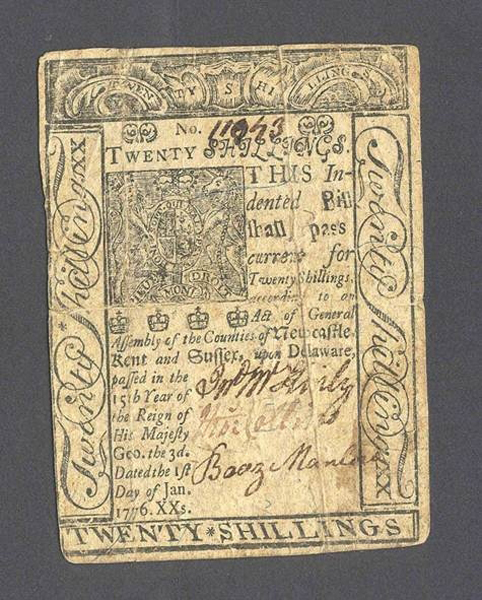 TWENTY SHILLINGS
No. 11943
TWENTY SHILLINGS.
THIS In-
dented Bill
shall pass
current for
Twenty Shillings,
according to an
Act of General
Assembly of the Counties of Newcastle,
Kent and Sussex, upon Delaware,
passed in the
15th Year of
the Reign of
His Majesty
Geo. the 3d.
Dated the 1st
Day of Jan.
1776. XXs.
Thos Collins
Boaz Manlove
Twenty Shillings XX
Twenty Shillings XX
TWENTY*SHILLINGS